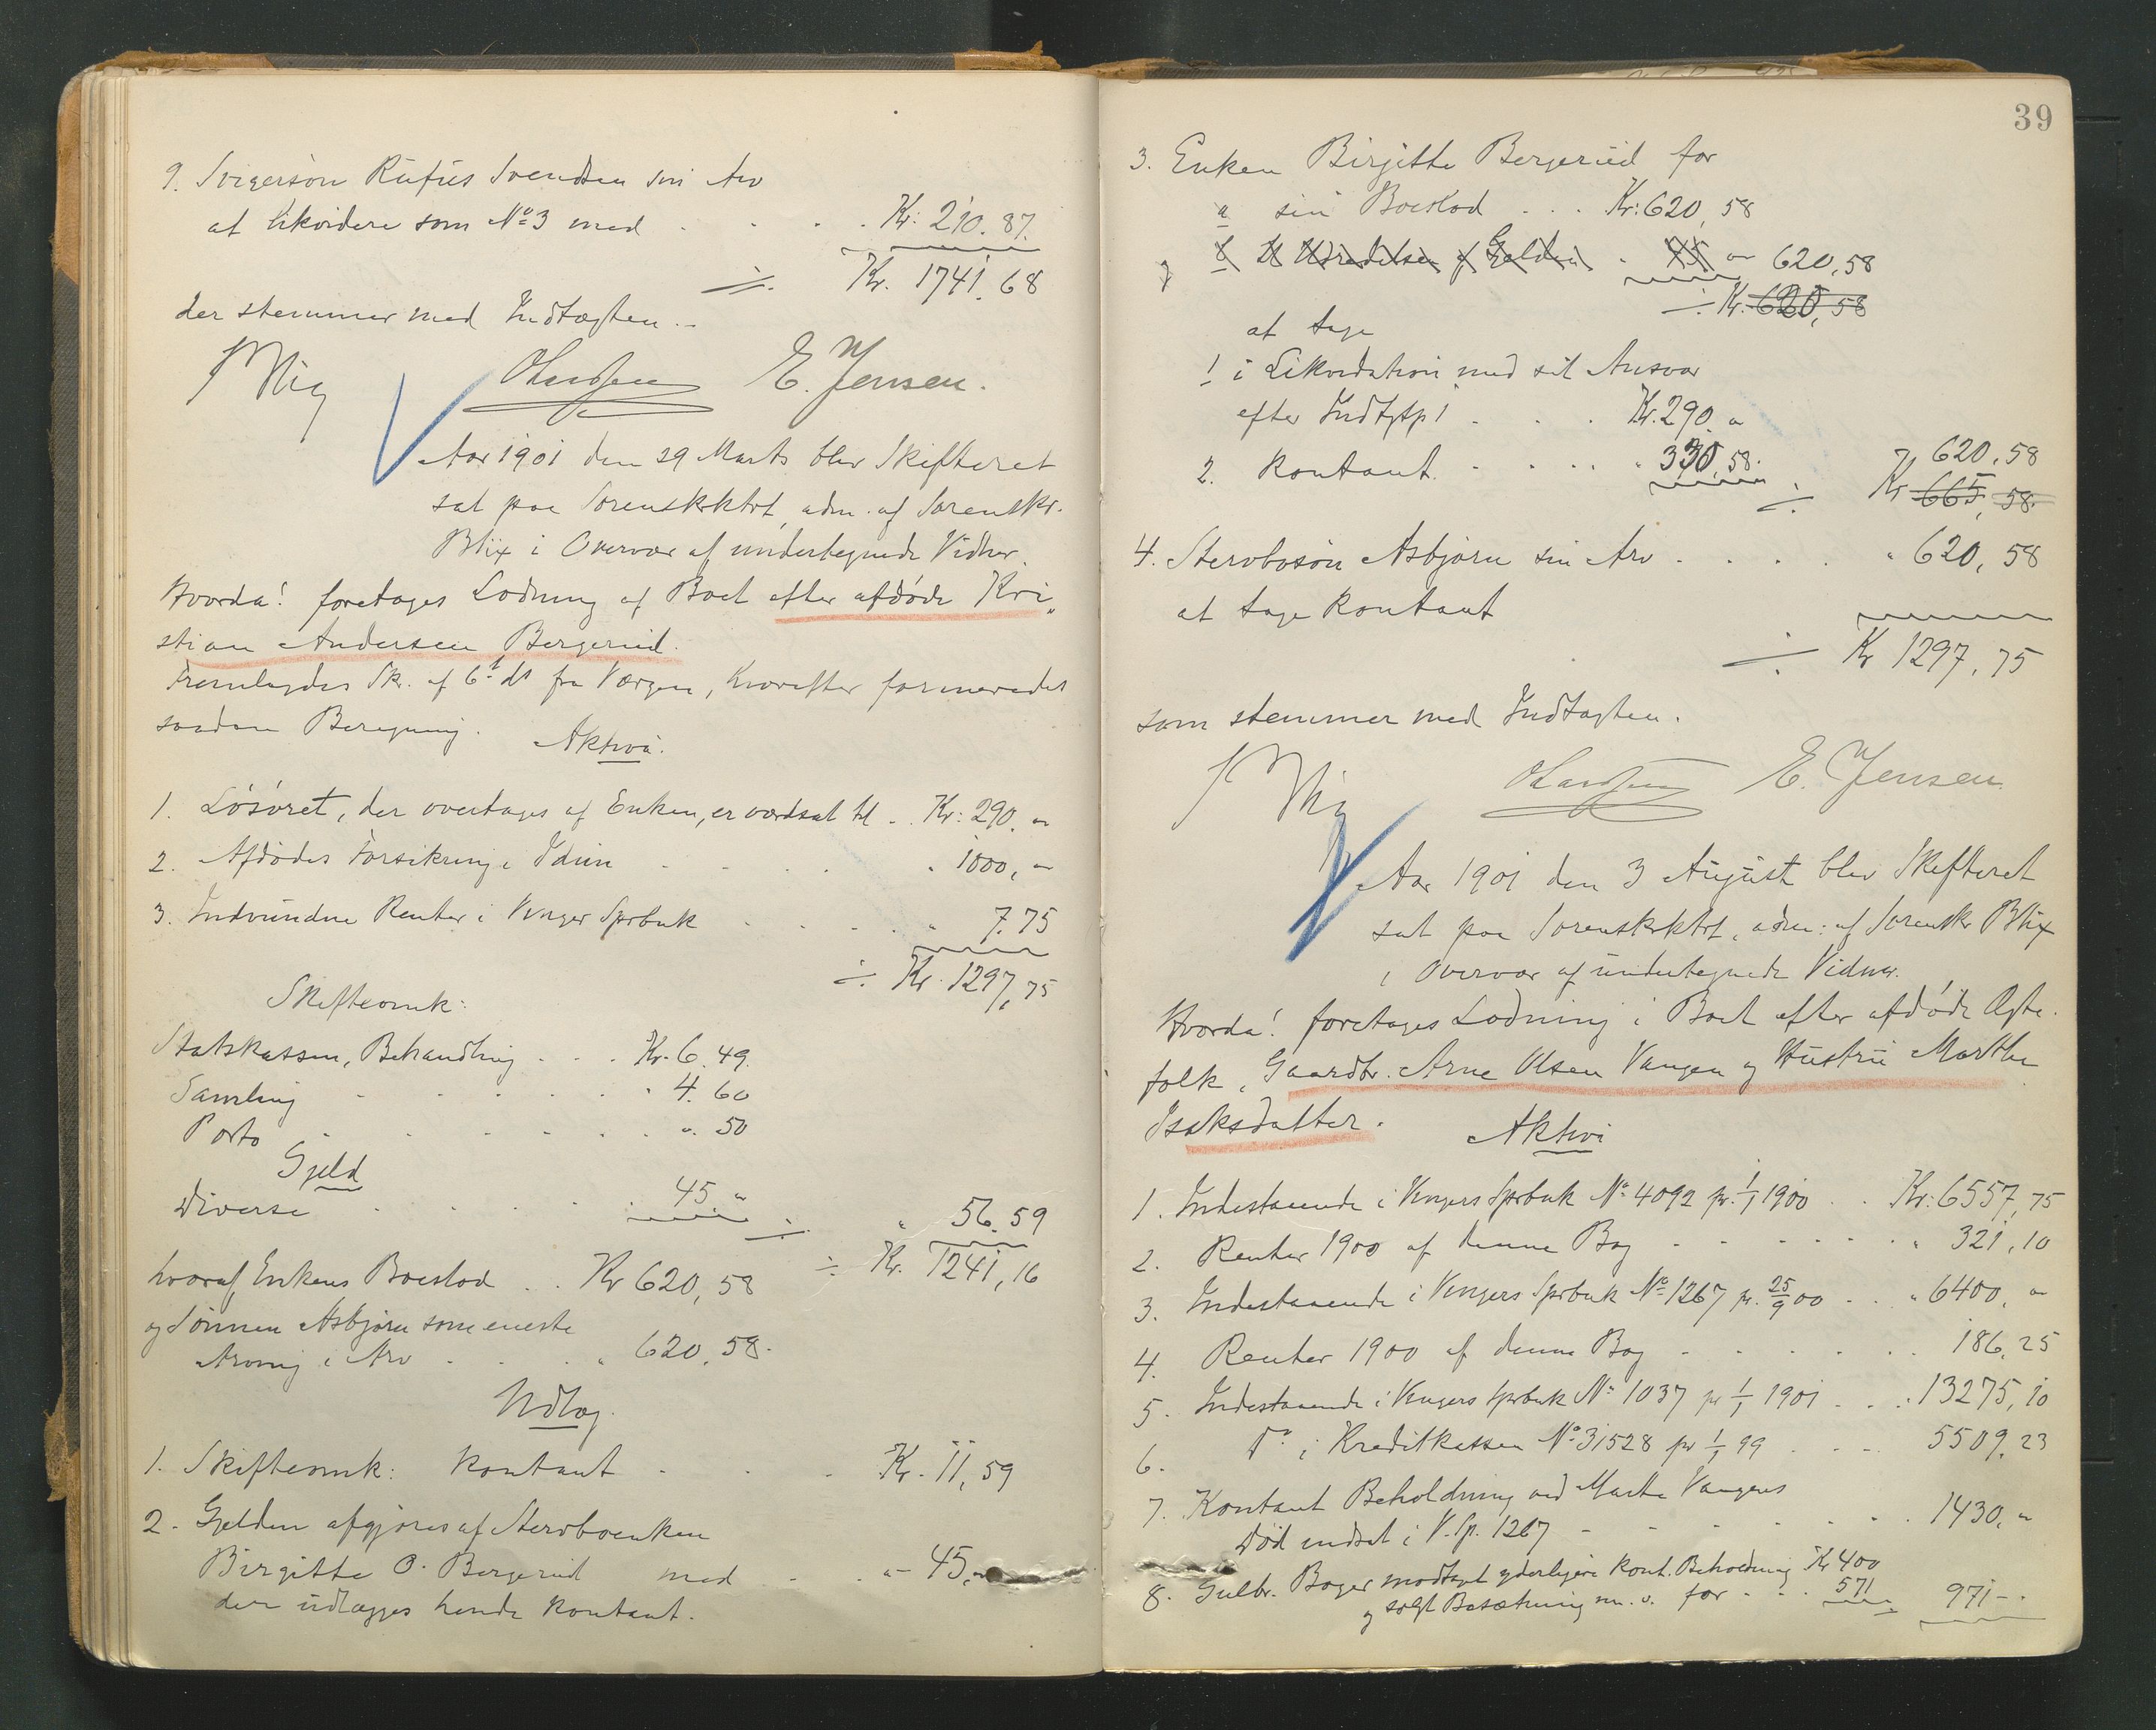 9. Svigersön Rufus Svendsen sin Arv
at likvidere som No 3 med . . . . Kr: 210.87.
÷ Kr. 1741.68
der stemmer med Indtægten. -
Blix E. Jensen.
Aar 1901 den 29 Marts blev Skifteret
sat paa Sorenskrktrt, adm. af Sorenskr.
Blix i Overvær af undertegnede Vidner.
Hvorda! foretages Lodning af Boet efter afdöde Kri„
stian Andersen Bergerud.
Fremlagdes Skr. af 6t ds fra Værgen, hvorefter formeredes
saadan Beregning.
Aktiva.
1. Lösöret, der overtages af Enken, er værdsat til . . Kr: 290. „
2. Afdödes Forsikring i Idun . . . . 1000, „
3. Indvundne Renter i Vinger Sprbnk . . . . . 7.75
÷ Kr. 1297,75
Skifteomk:
Statskassen, Behandling . . . Kr. 6.49.
Samling . . . . . . 4.60
Porto . . . . . . „. 50
Gjeld
Diverse . . . . 45 „
÷ „ 56.59
÷ Kr. 1241,16
hvoraf Enkens Boeslod . . Kr 620,58
og Sönnen Asbjörn som eneste
Arving i Arv . . . . „ 620,58.
Udlæg.
1. Skifteomk: kontant . . . Kr. 11,59
2. Gjelden afgjöres af Stervboenken
Birgitte O. Bergerud med . . „ 45, „
der udlægges hende kontant.
39
3. Enken Birgitte Bergerud for
a sin Boeslod . . . Kr: 620,58
b til Udredelse af Gjelden . 45 „ 620,58
÷ Kr. 620,58
at tage
1 i Likvidation med sit Ansvar
efter Indtgtp 1 . . . Kr. 290. „
2. kontant. . . . . „ 330,58.
„ 620,58
÷ Kr 665,58.
4. Stervbosön Asbjörn sin Arv . . . . . „ 620,58
at tage kontant
÷ Kr 1297,75
som stemmer med Indtægten.
Blix E. Jensen
Aar 1901 den 3 August blev Skifteret
sat paa Sorenskrktrt, adm: af Sorenskr Blix
i Overvær af undertegnede Vidner.
Hvorda! foretages Lodning i Boet efter afdöde Ægte.
folk, Gaardbr. Arne Olsen Vangen og Hustru Marthe
Isaksdatter.
Aktiva
1. Indestaaende i Vingers Sprbnk No 4092 pr. 1/1 1900 . . Kr: 6557,75
2. Renter 1900 af denne Bog . . . . . . . „ 321,10
3. Indestaaende i Vingers Sprbnk No 1267 pr. 25/9 00 . . „ 6400, „
4. Renter 1900 af denne Bog . . . . . . 186,25
5. Indestaaende i Vingers Sprbnk No 1037 pr 1/1 1901 . . . 13275,10
6. Do i Kreditkassen No 31528 pr 1/1 99 . . . . 5509,23
7. Kontant Beholdning ved Marte Vangens
Död indsat i V. Sp. 1267 . . . . . . . 1430, „
8. Gulbr. Boger modtaget yderligere kont. Beholdning Kr 400
og solgt Besætning m. v. for . . . 571 971 - .